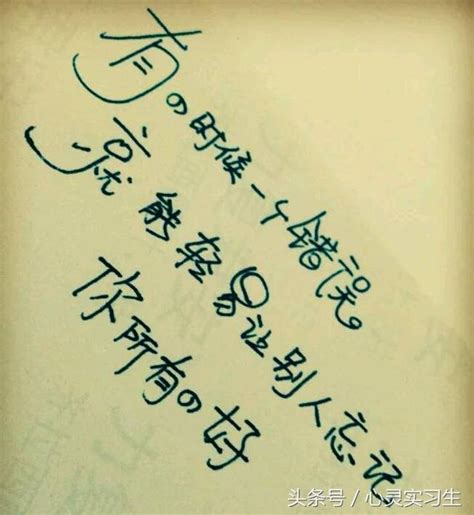 有の时候一个错误。
就能轻易让别人忘记
你所有の好
头条号／心灵实习生